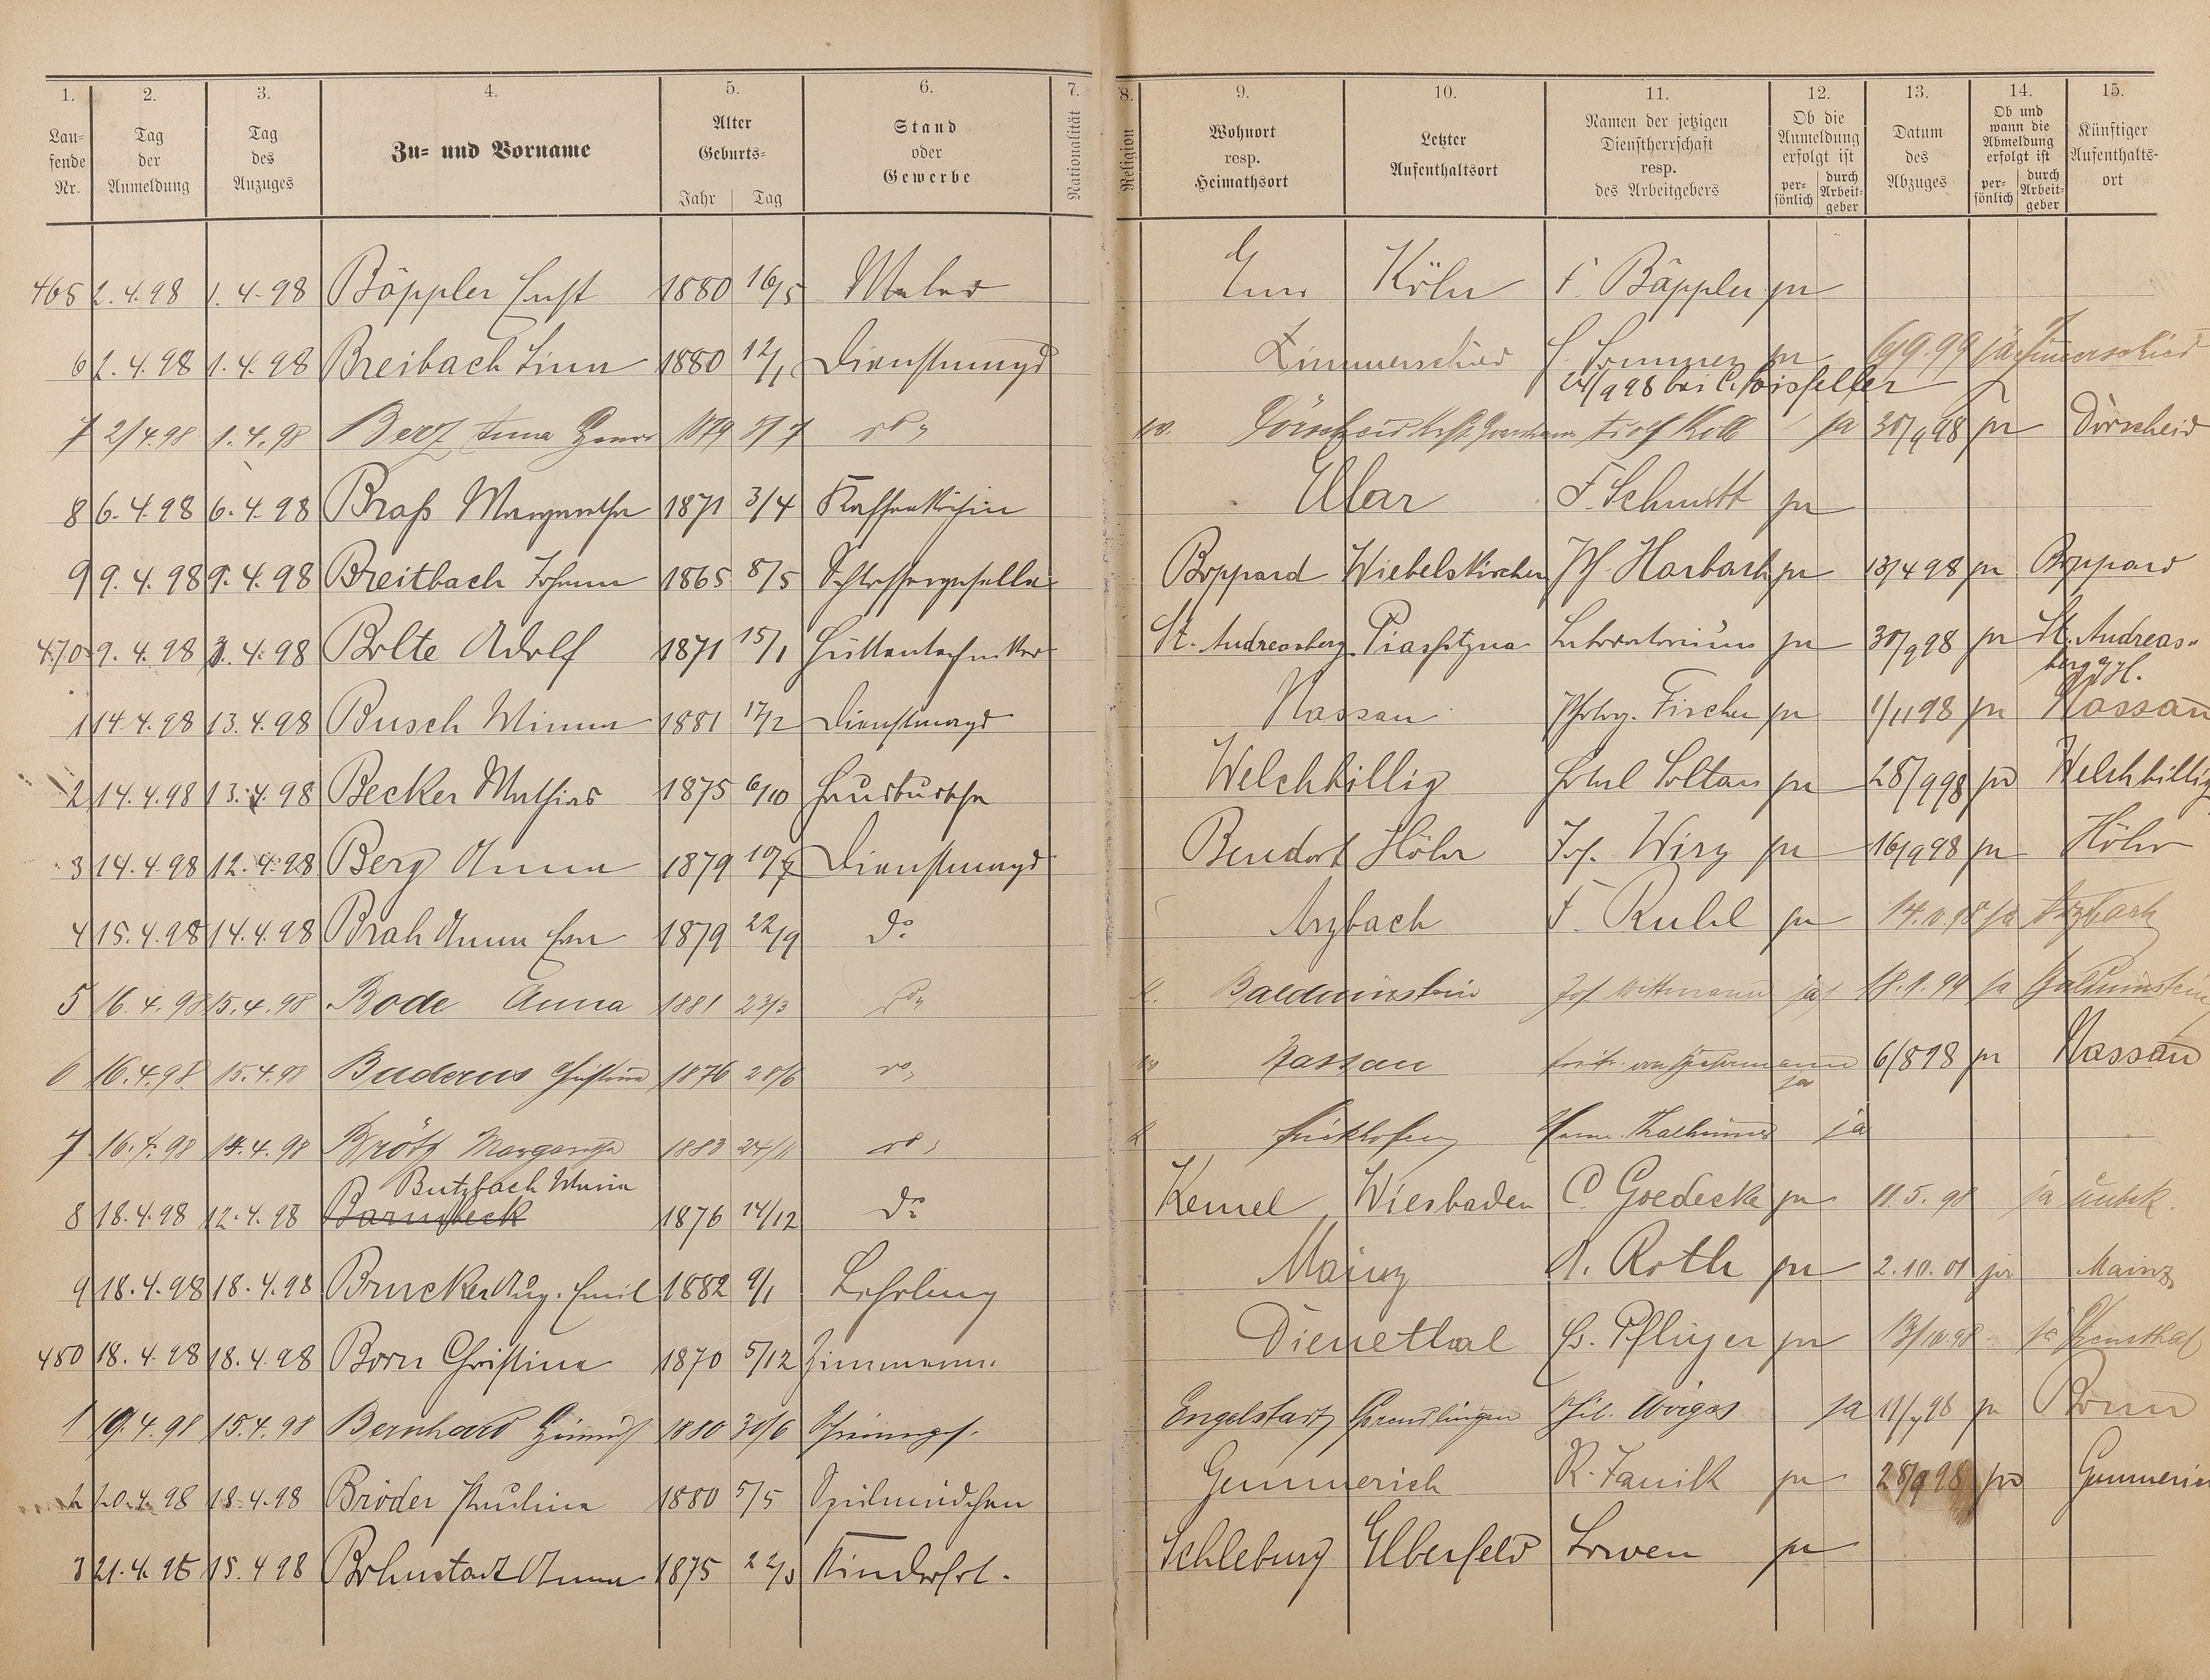 1. 2. 3. 4. 5. 6. 7. 8. 9. 10. 11. 12. 13. 14. 15.
Laufende Nr. Tag der Anmeldung Tag des Anzuges Zu- und Vorname Alter Geburts- Jahr Tag Stand oder Gewerbe Nationalität Religion Wohnort resp. Heimathsort Letzter Aufenthaltsort Namen der jetzigen Dienstherrschaft resp. des Arbeitgebers Ob die Anmeldung erfolgt ist persönlich durch Arbeitgeber Datum des Abzuges Ob und wann die Abmeldung erfolgt ist persönlich durch Arbeitgeber Künftiger Aufenthaltsort
465 2.4.98 1.4.98 Bäppler Ernst 1880 16/5 Maler Ems Köln F. Bäppler pr
6 2.4.98 1.4.98 Breibach Lina 1880 12/1 Dienstmagd Zimmerschied Sommer pr 6/9.99 ja Zimmerschied
7 2/4.98 1.4.98 Berz Anna 1879 5/7 do Dörscheid ja 30/9 98 pr Dörscheid
8 6.4.98 6.4.98 Braß Margaretha 1871 3/4 Ellar F. Schmitt pr
9 9.4.98 9.4.98 Breitbach Johann 1865 8/5 Schlossergeselle Boppard Wiebelskirchen Harbach pr 13/4 98 pr Boppard
470 9.4.98 3.4.98 Bolte Adolf 1871 15/1 Hüttentechniker St. Andreasberg Laboratorium pr 30/9 98 pr St. Andreas-
berg a/H.
1 14.4.98 13.4.98 Busch Minna 1881 17/2 Dienstmagd Nassau Photogr. Fischer pr 1/11 98 pr Nassau
2 14.4.98 13.4.98 Becker Mathias 1875 6/10 Hausbursche Welchbillig Hotel Soltau pr 28/9 98 pr Welchbillig
3 14.4.98 12.4.98 Berg Anna 1879 10/7 Dienstmagd Bendorf Höhr Jos. Wirg pr 16/9 98 pr Höhr
4 15.4.98 14.4.98 Brah Anna Eva 1879 22/9 do Arzbach F. Ruhl pr 14.10.98 ja Arzbach
5 16.4.98 15.4.98 Bode Anna 1881 23/3 do Balduinstein Jos. Wittmann ja 18.1.99 ja Balduinstein
6 16.4.98 15.4.98 Buderus Christina 1876 28/6 do Nassau ja 6/8 98 pr Nassau
7 16.4.98 14.4.98 Brötz Margaretha 1883 24/11 do Frickhofen ja
Butzbach Maria
8 18.4.98 12.4.98 Barmbeck 1876 14/12 do Kemel Wiesbaden C. Goedecke pr 11.5.98 ja unbek.
9 18.4.98 18.4.98 Brucker Aug. Emil 1882 9/1 Lehrling Mainz A. Roth pr 2.10.01 pr Mainz
480 18.4.98 18.4.98 Born Christina 1870 5/12 Dienethal Pflüger pr 13/10.98 ja Dienethal
1 19.4.98 15.4.98 Bernhard Heinrich 1880 30/6 Engelstadt Phil. ja 11/7 98 pr Bonn
2 20.4.98 18.4.98 Bröder Paulina 1880 5/5 Spülmädchen Gemmerich R. Fanik pr 28/9 98 pr Gemmerich
3 21.4.98 15.4 98 Bohnstadt Anna 1875 22/3 Kinderfrl. Schlebusch Elberfeld Löwen pr